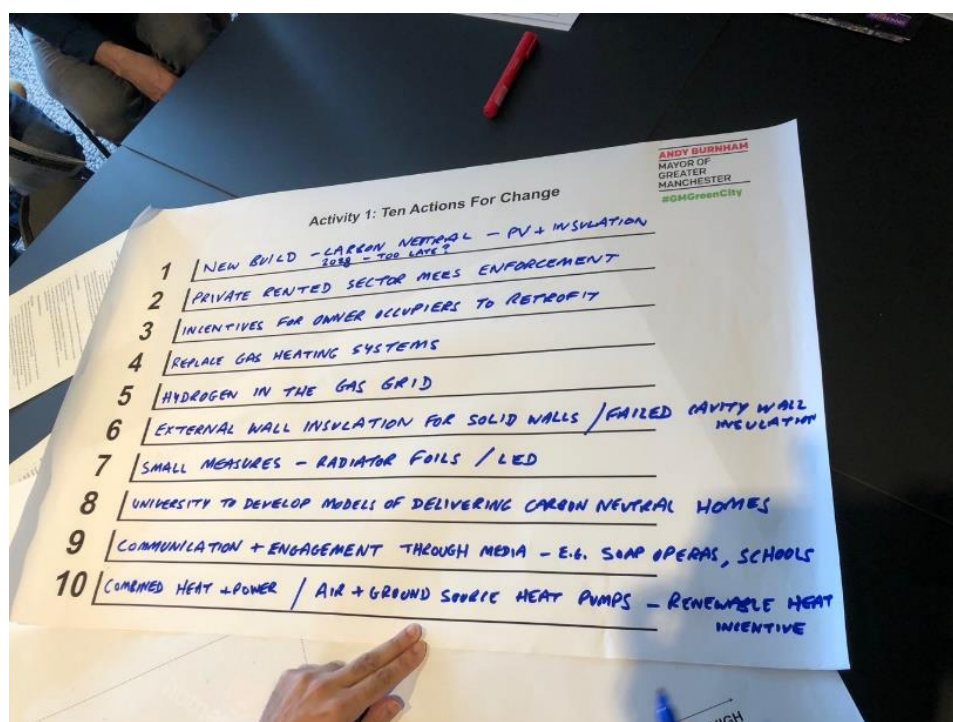 ANDY BURNHAM
MAYOR OF
GREATER
MANCHESTER
#GMGreenCity
Activity 1: Ten Actions For Change
1 NEW BUILD - CARBON NEUTRAL - PV + INSULATION
2028 - TOO LATE?
2 PRIVATE RENTED SECTOR MEES ENFORCEMENT
3 INCENTIVES FOR OWNER OCCUPIERS TO RETROFIT
4 REPLACE GAS HEATING SYSTEMS
5 HYDROGEN IN THE GAS GRID
6 EXTERNAL WALL INSULATION FOR SOLID WALLS / FAILED CAVITY WALL
INSULATION
7 SMALL MEASURES - RADIATOR FOILS / LED
8 UNIVERSITY TO DEVELOP MODELS OF DELIVERING CARBON NEUTRAL HOMES
9 COMMUNICATION + ENGAGEMENT THROUGH MEDIA - E.G. SOAP OPERAS, SCHOOLS
10 COMBINED HEAT + POWER / AIR + GROUND SOURCE HEAT PUMPS - RENEWABLE HEAT
INCENTIVE
HIGH